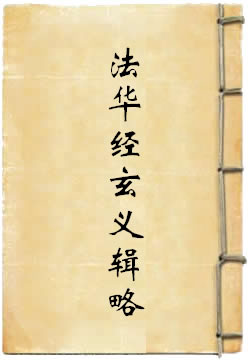 法华经玄义辑略